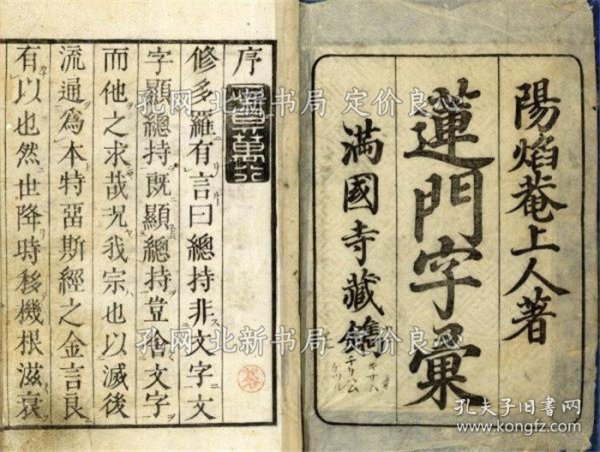 陽焰菴上人著
蓮門字彙
滿國寺藏鐫
序
修多羅有言曰總持非文字文
字顯總持既顯總持豈舍文字
而他之求哉况我宗也以滅後
流通為本特留斯經之金言良
有以也然世降時移機根滋衰
孔网北新书局 定价良
孔网北新书局 定价良
孔网北新书局 定价良
孔夫子旧书网
www.kongfz.com